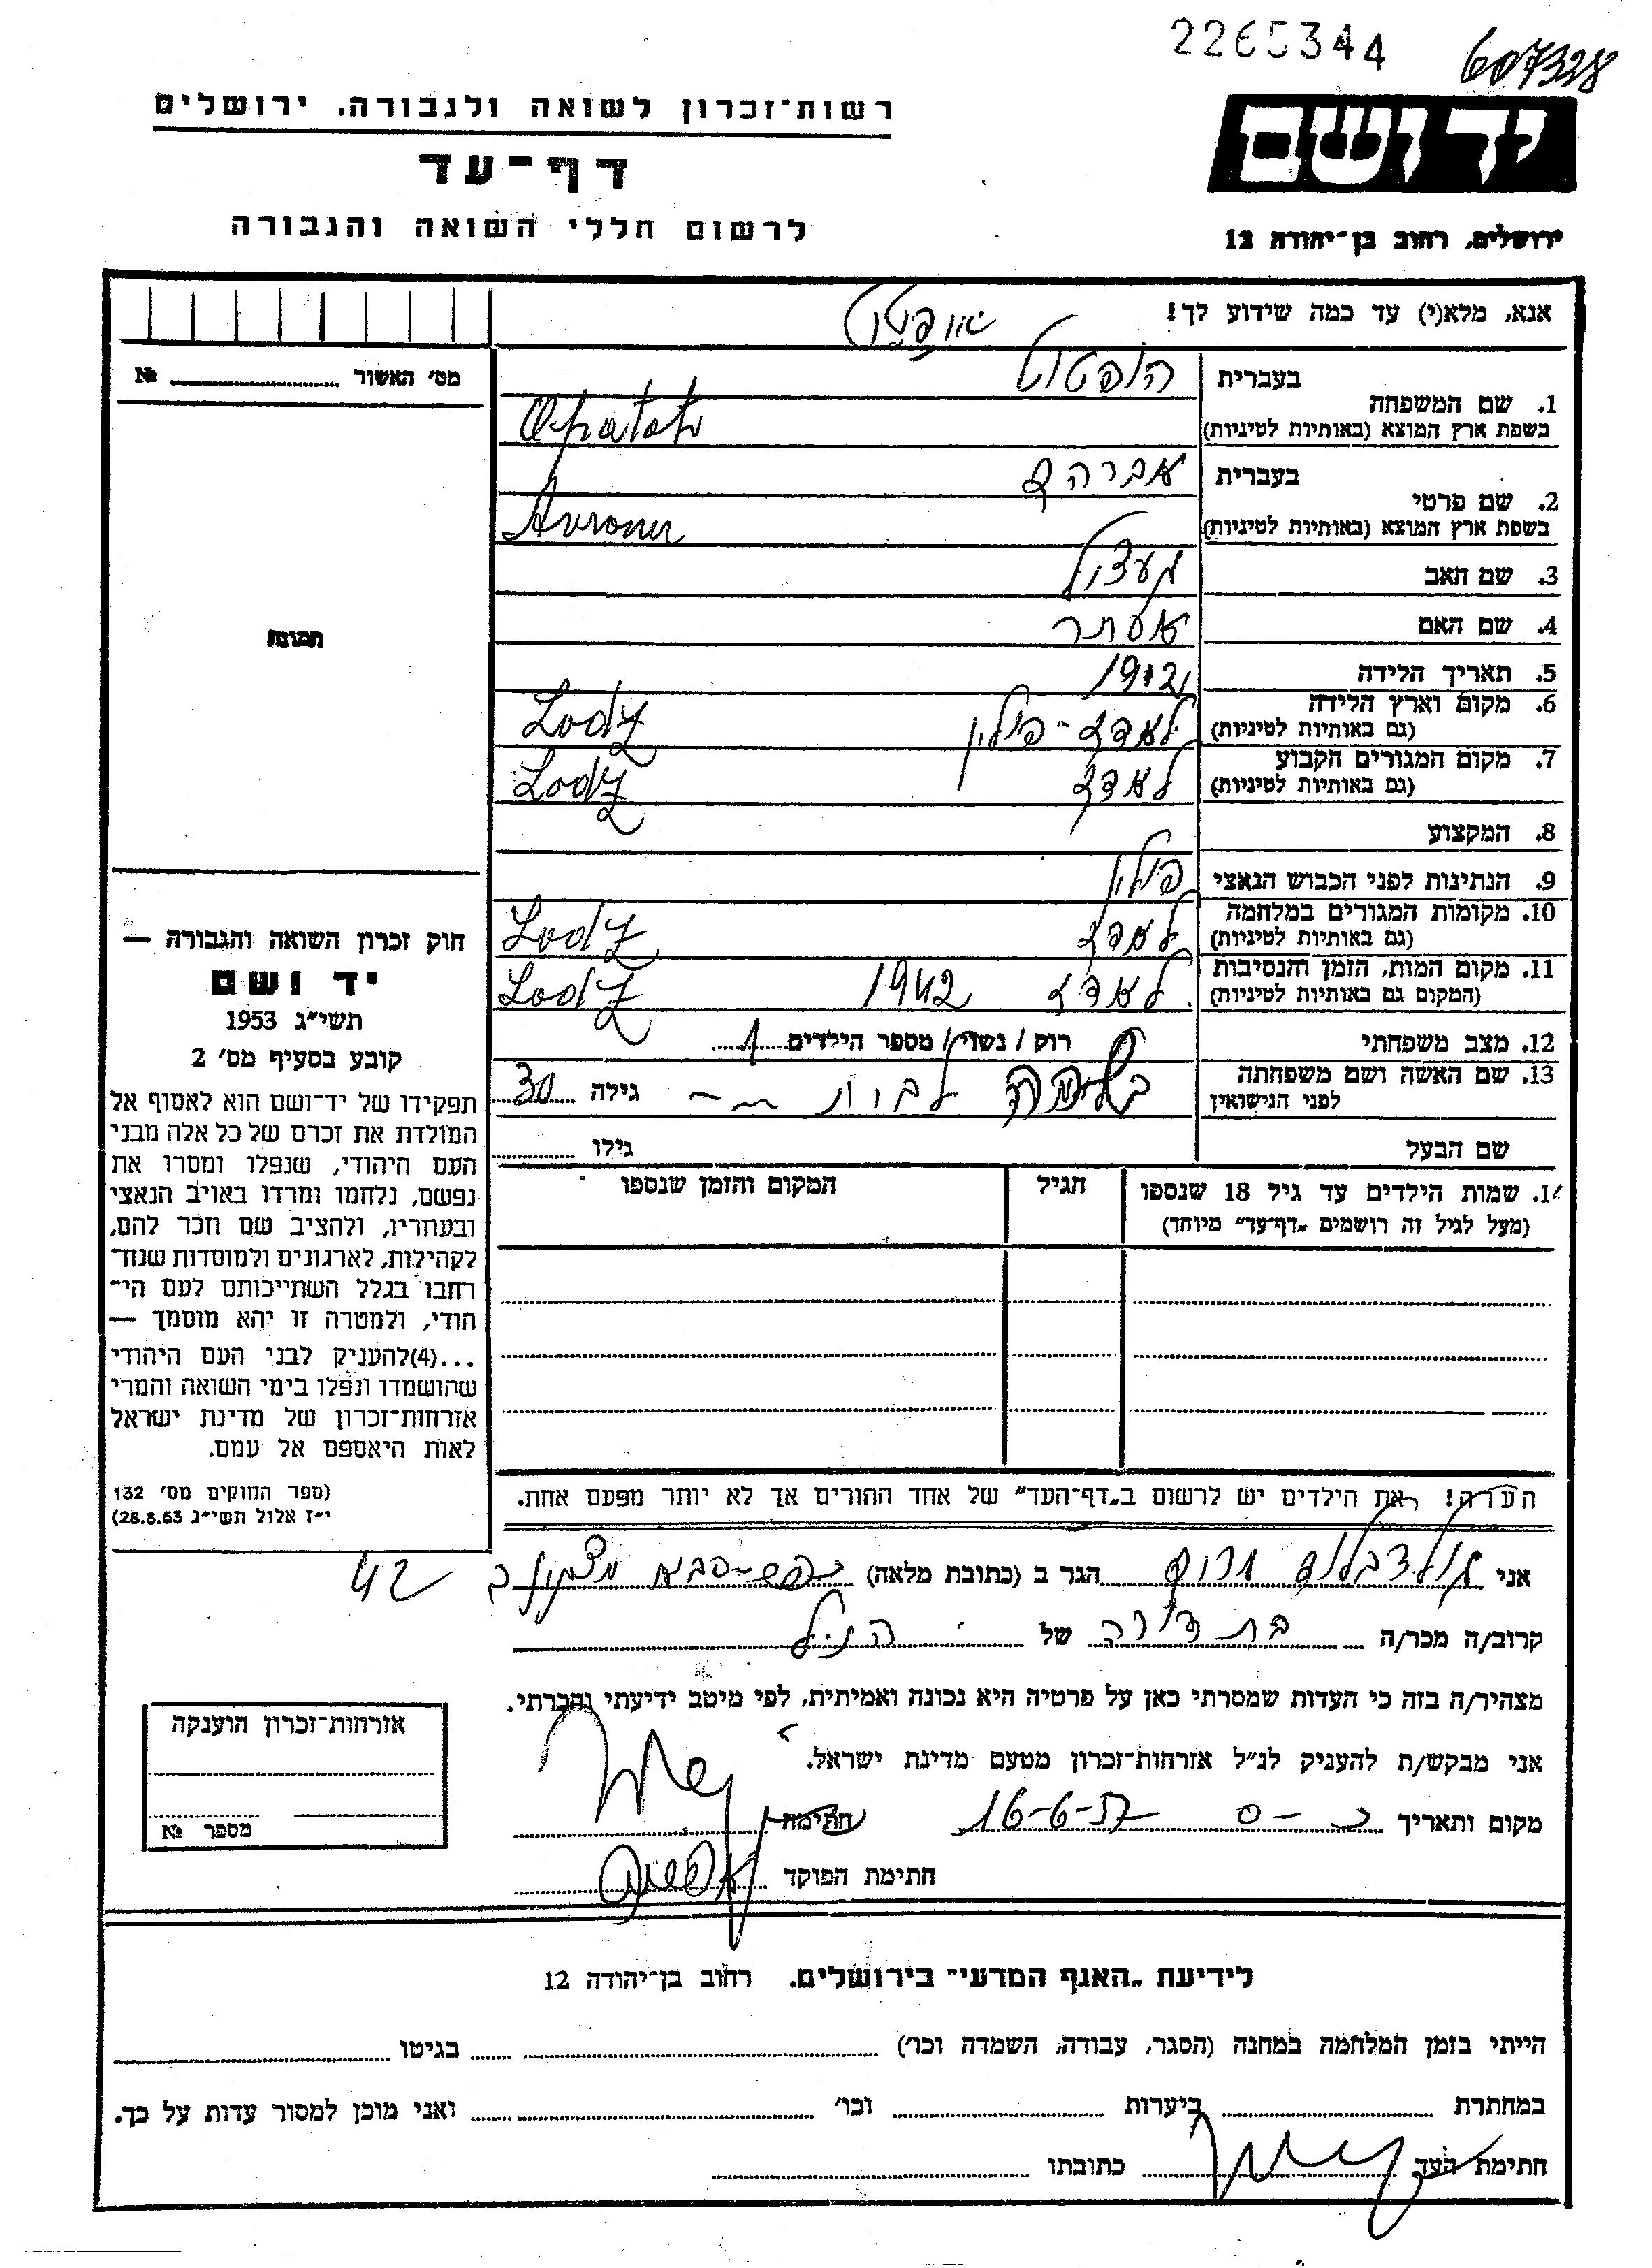 2265344
607338
יד ושם
ירושלים, רחוב בן־יהודה 12
רשות־זכרון לשואה ולגבורה, ירושלים
דף־עד
לרשום חללי השואה והגבורה
אנא, מלא(י) עד כמה שידוע לך!
בעברית
1. שם המשפחה
בשפת ארץ המוצא (באותיות לטיניות)
בעברית אברהם
2. שם פרטי
בשפת ארץ המוצא (באותיות לטיניות)
3. שם האב
4. שם האם אסתר
5. תאריך הלידה 1912
6. מקום וארץ הלידה לאדז - פולין Lodz
(גם באותיות לטיניות)
7. מקום המגורים הקבוע לאדז Lodz
(גם באותיות לטיניות)
8. המקצוע
9. הנתינות לפני הכבוש הנאצי פולין
10. מקומות המגורים במלחמה לאדז Lodz
(גם באותיות לטיניות)
11. מקום המות, הזמן והנסיבות לאדז 1942 Lodz
(המקום גם באותיות לטיניות)
12. מצב משפחתי רוק / נשוי / מספר הילדים 1
13. שם האשה ושם משפחתה לפני הנישואין גילה 30
שם הבעל גילו
14. שמות הילדים עד גיל 18 שנספו הגיל המקום והזמן שנספו
(מעל לגיל זה רושמים „דף־עד” מיוחד)
הערה! את הילדים יש לרשום ב„דף־העד” של אחד ההורים אך לא יותר מפעם אחת.
מס׳ האשור №
תמונה
חוק זכרון השואה והגבורה —
יד ושם
תשי״ג 1953
קובע בסעיף מס׳ 2
תפקידו של יד־ושם הוא לאסוף אל
המולדת את זכרם של כל אלה מבני
העם היהודי, שנפלו ומסרו את
נפשם, נלחמו ומרדו באויב הנאצי
ובעוזריו, ולהציב שם וזכר להם,
לקהילות, לארגונים ולמוסדות שנח־
רחבו בגלל השתייכותם לעם הי־
הודי, ולמטרה זו יהא מוסמך —
...(4)להעניק לבני העם היהודי
שהושמדו ונפלו בימי השואה והמרי
אזרחות־זכרון של מדינת ישראל
לאות היאספם אל עמם.
(ספר החוקים מס׳ 132
י״ז אלול תשי״ג 28.8.53)
אני הגר ב (כתובת מלאה) 42
קרוב/ה מכר/ה בת דודה של הנ״ל
מצהיר/ה בזה כי העדות שמסרתי כאן על פרטיה היא נכונה ואמיתית, לפי מיטב ידיעתי והכרתי.
אני מבקש/ת להעניק לנ״ל אזרחות־זכרון מטעם מדינת ישראל.
מקום ותאריך 16-6-57 חתימה
חתימת הפוקד
אזרחות־זכרון הוענקה
מספר №
לידיעת „האגף המדעי” בירושלים. רחוב בן־יהודה 12
הייתי בזמן המלחמה במחנה (הסגר, עבודה, השמדה וכו׳) בגיטו
במחתרת ביערות וכו׳ ואני מוכן למסור עדות על כך.
חתימת העד כתובתו